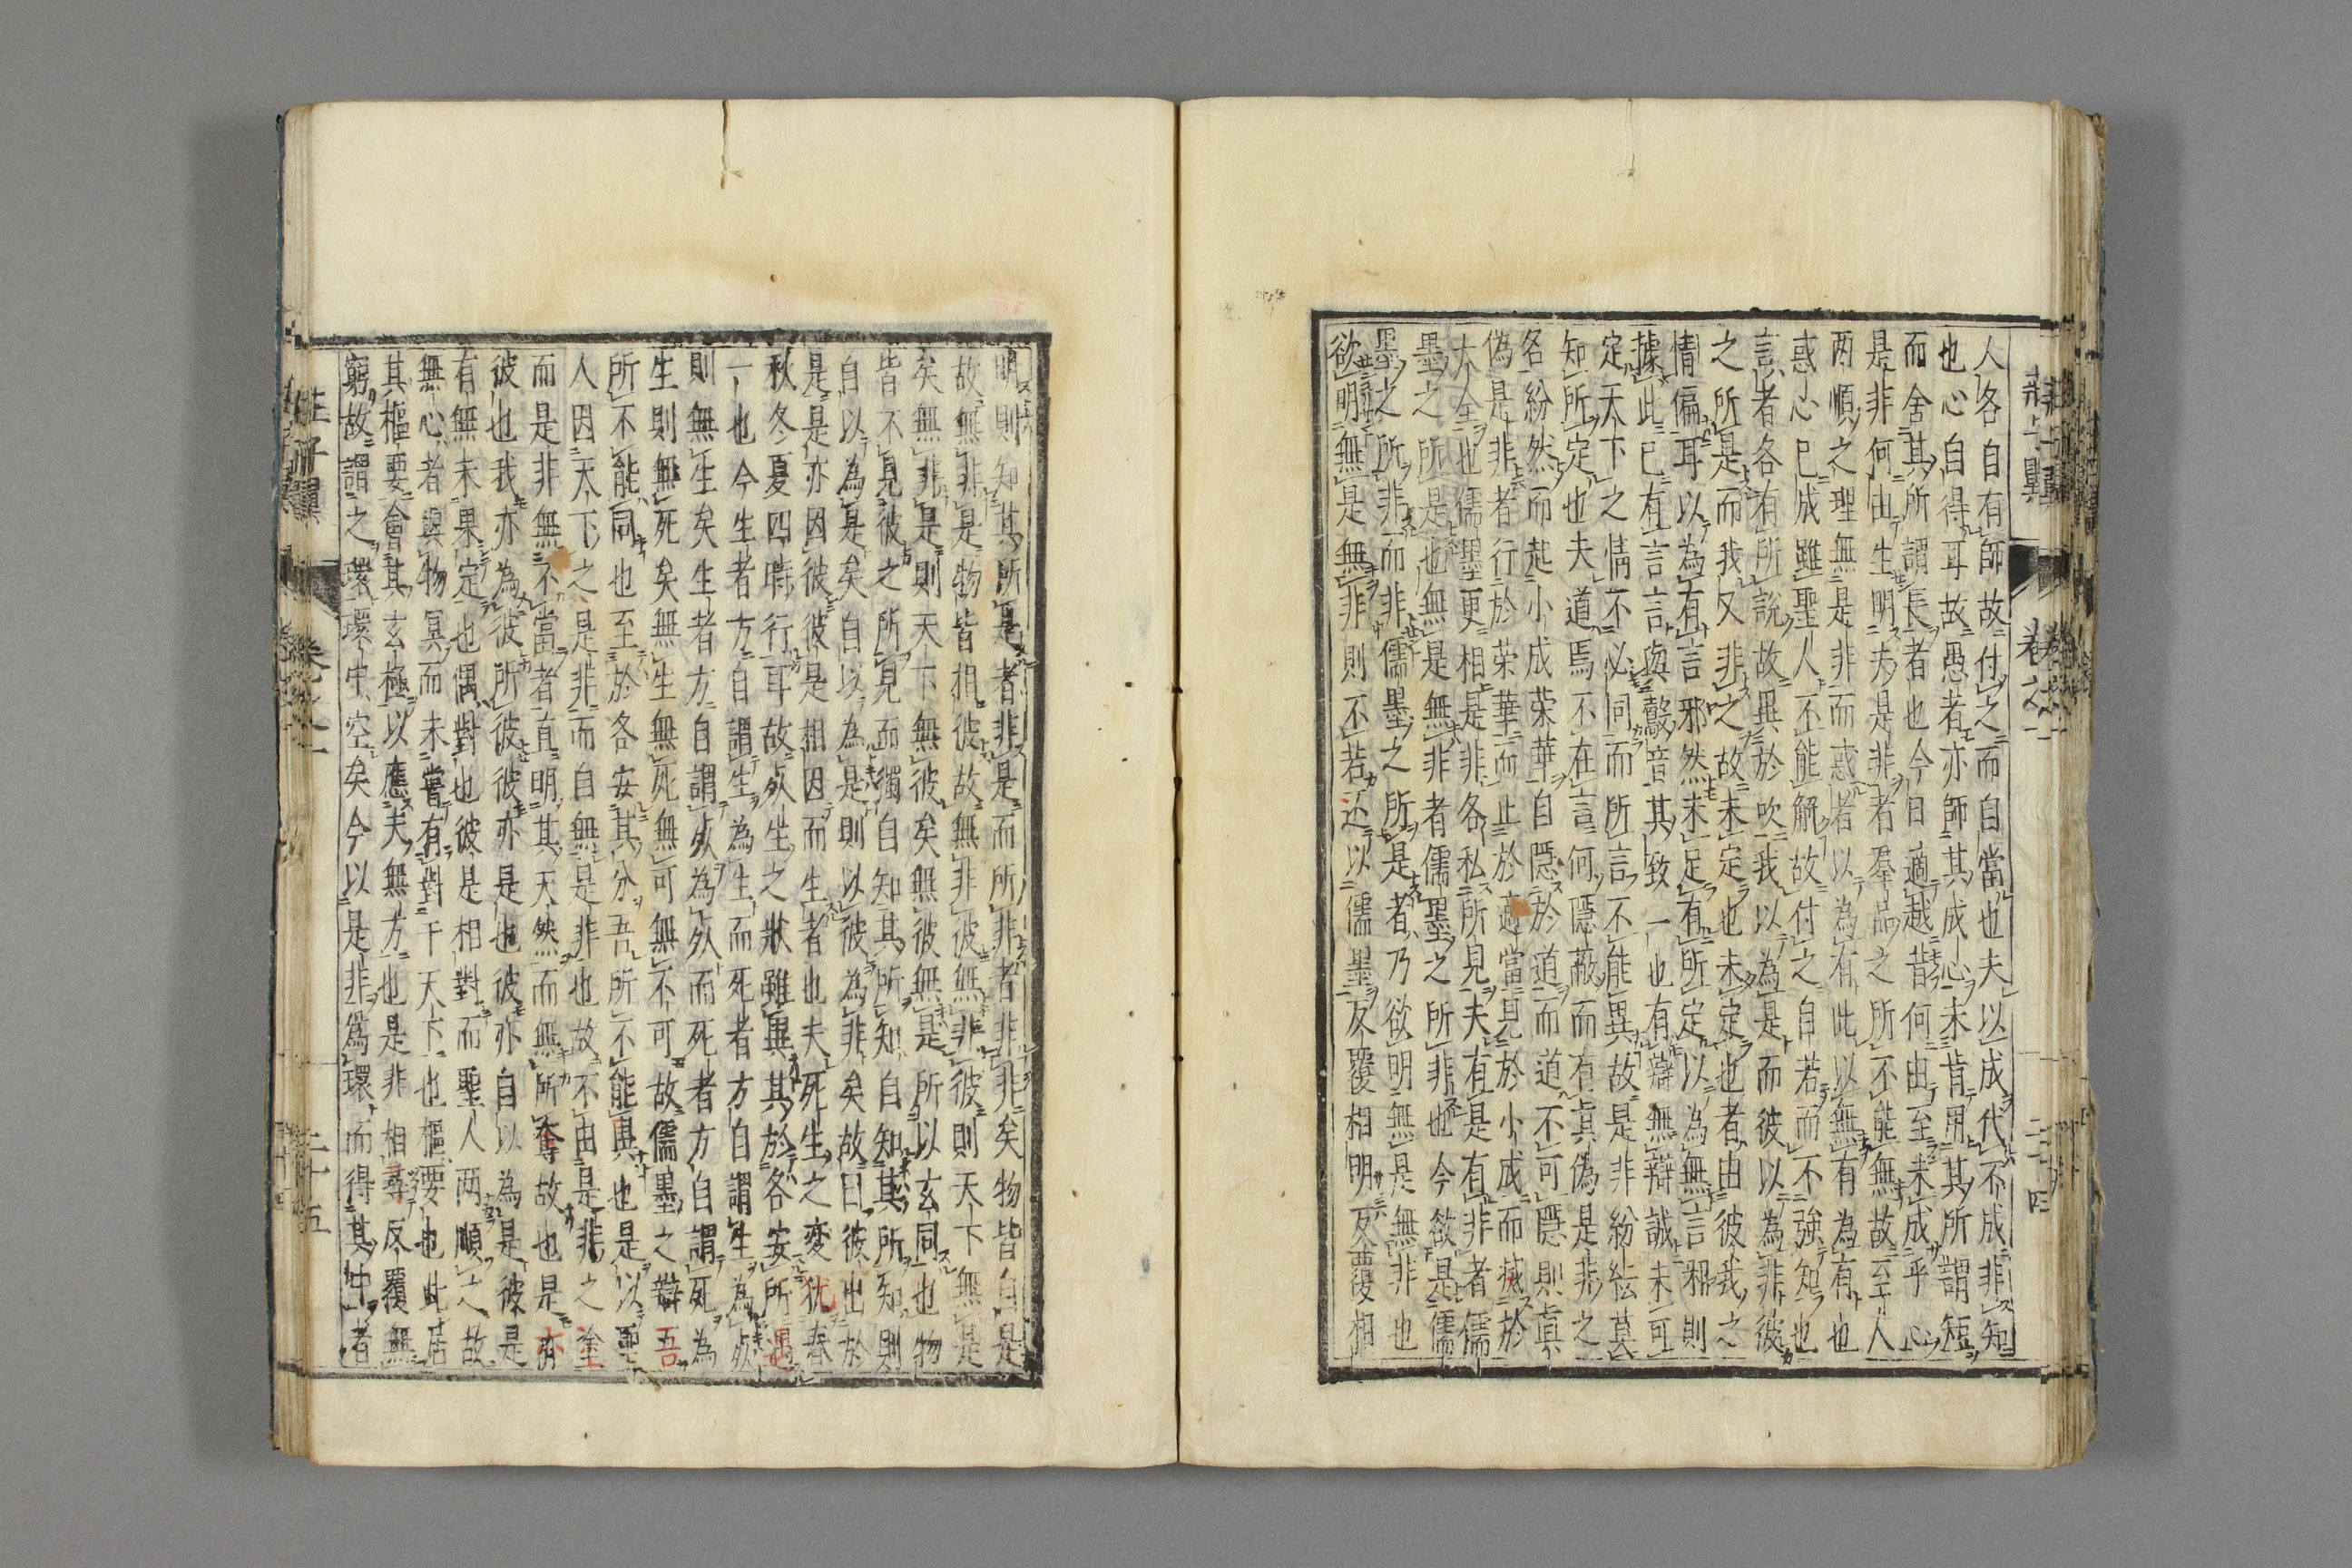 莊子翼　卷之一　二十四
人各自有師故付之而自當也夫以成代不成非知
也心自得耳故愚者亦師其成心未肯用其所謂短
而舍其所謂長者也今日適越昔何由至未成乎心
是非何由生明夫是非者羣品之所不能無故至人
两順之理無是非而惑者以為有此以無有為有也
惑心已成雖聖人不能解故付之自若而不強知也
言者各有所說故異於吹我以為是而彼以為非彼
之所是而我又非之故未定也未定也者由彼我之
情偏耳以為有言邪然未足有所定以為無言邪則
據此已有言言與鷇音其致一也有辯無辯誠未可
定天下之情不必同而所言不能異故是非紛紜莫
知所定也夫道焉不在言何隱蔽而有真偽是非之
名紛然而起小成荣華自隱於道而道不可隱則真
偽是非者行於荣華而止於適當見於小成而滅於
大全也儒墨更相是非各私所見夫有是有非者儒
墨之所是也無是無非者儒墨之所非也今欲是儒
墨之所非而非儒墨之所是者乃欲明無是無非也
欲明無是無非則不若还以儒墨反覆相明反覆相
明則知其所是者非是而所非者非非矣物皆自是
故無非是物皆相彼故無非彼無非彼則天下無是
矣無非是則天下無彼矣無彼無是所以玄同也物
皆不見彼之所見而獨自知其所知自知其所知則
自以為是矣自以為是則以彼為非矣故曰彼出於
是是亦因彼彼是相因而生者也夫死生之変犹春
秋冬夏四時行耳故死生之狀雖異其於各安所遇
一也今生者方自謂生為生而死者方自謂生為死
則無生矣生者方自謂死為死而死者方自謂死為
生則無死矣無生無死無可無不可故儒墨之辯吾
所不能同也至於各安其分吾所不能異也是以聖
人因天下之是非而自無是非也故不由是非之塗
而是非無不當者直明其天然而無所奪故也是亦
彼也我亦為彼所彼彼亦是也彼亦自以為是彼是
有無未果定也偶對也彼是相對而聖人两順之故
無心者與物冥而未嘗有對于天下也樞要也此居
其樞要會其玄極以應夫無方也是非相尋反覆無
窮故謂之環環中空矣今以是非爲環而得其中者
莊子翼　卷之一　二十五